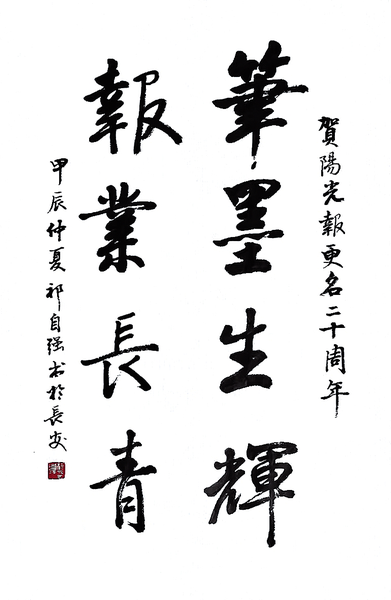 賀陽光報更名二十周年
筆墨生輝
報業長青
甲辰仲夏祁自强书於長安